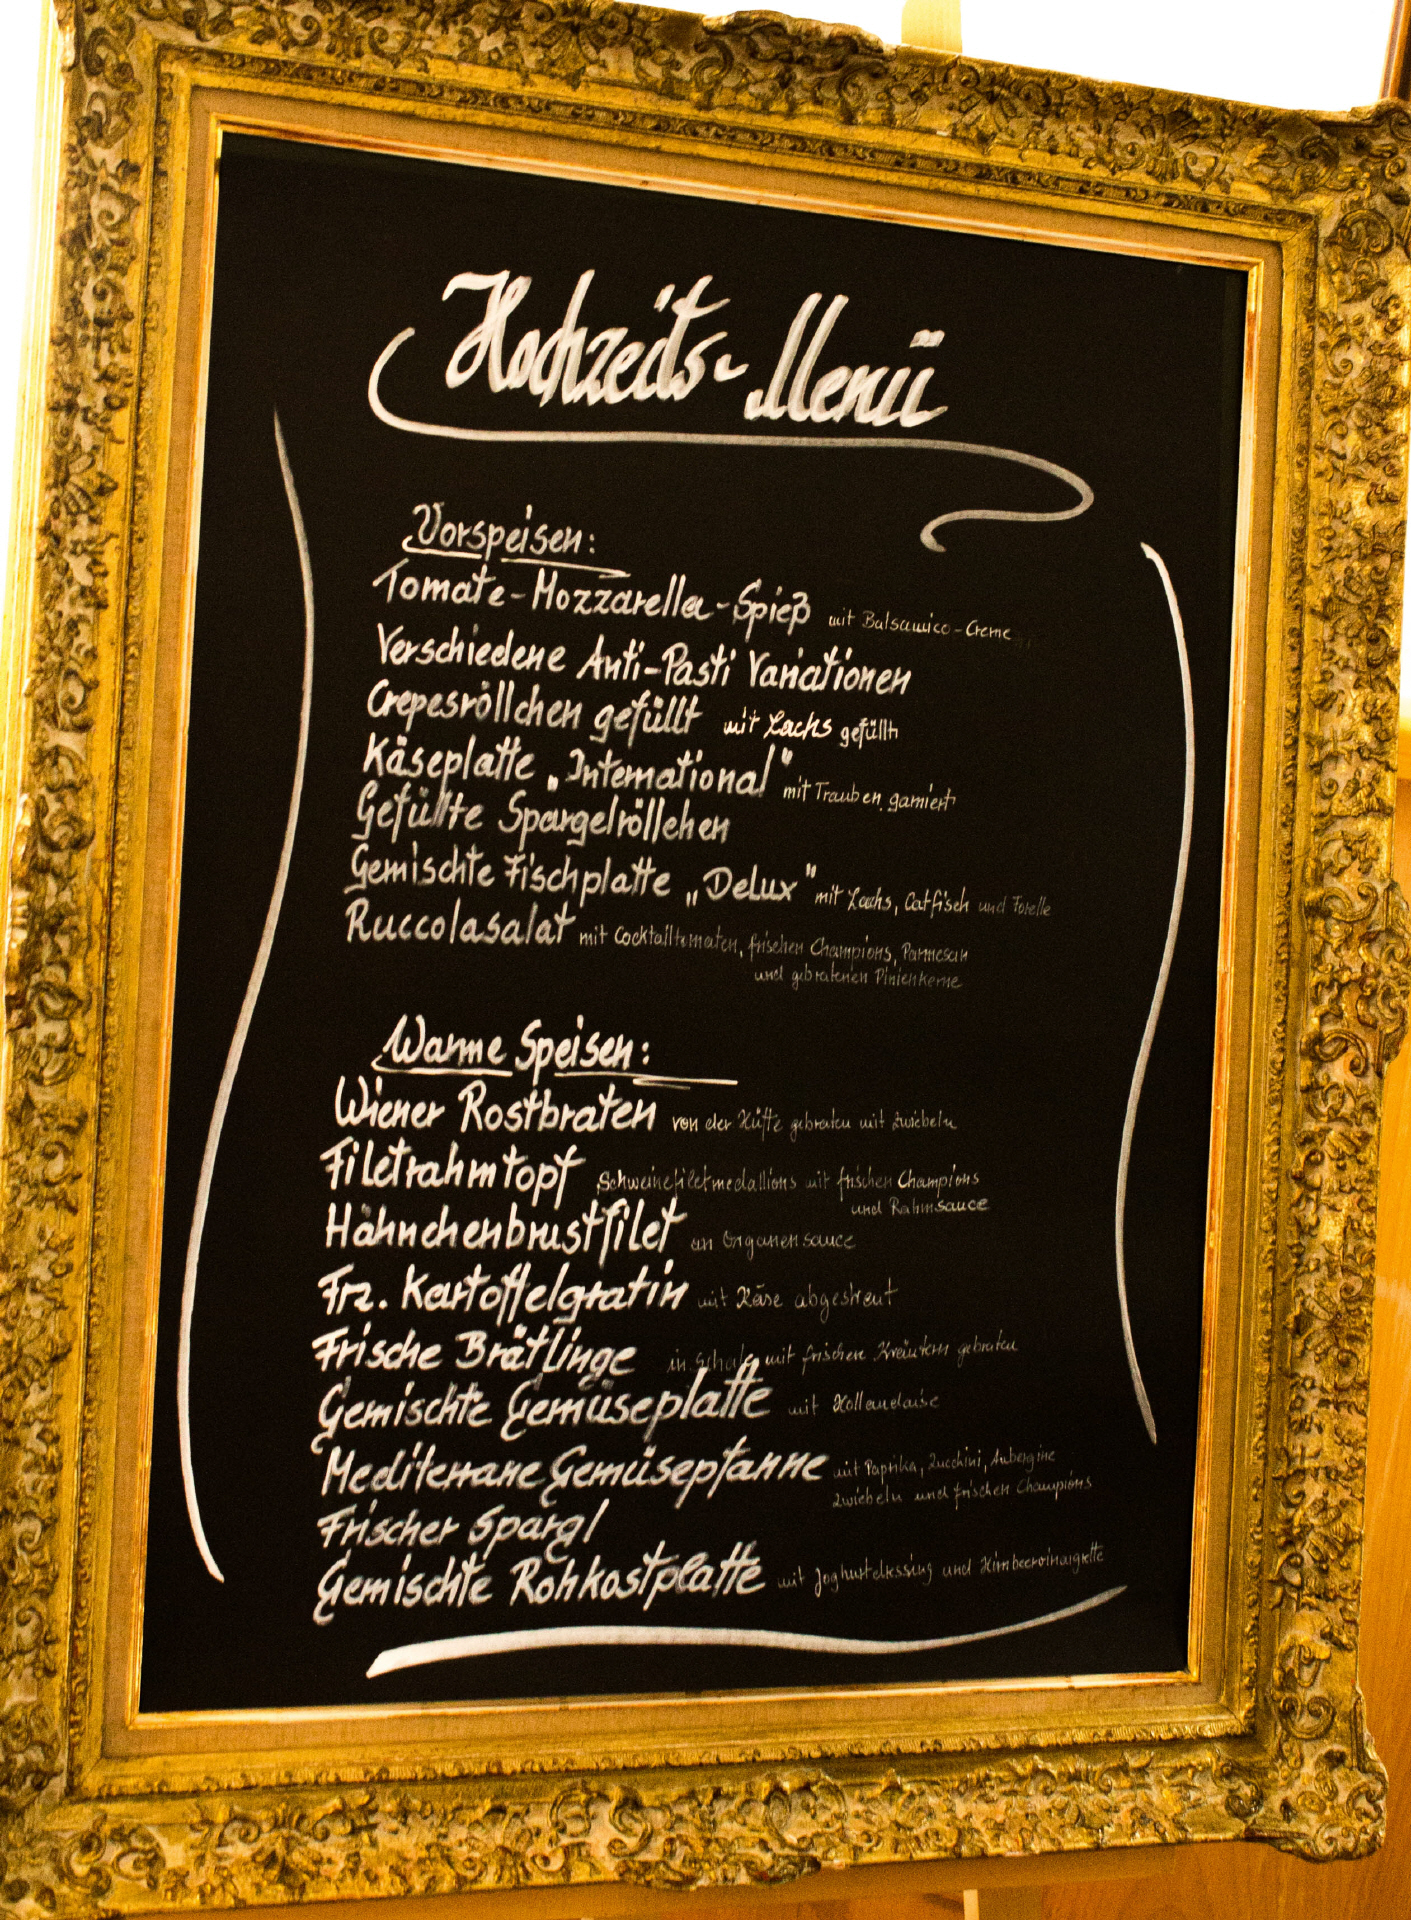 Hochzeits-Menü
Vorspeisen:
Tomate-Mozzarella-Spieß mit Balsamico-Creme
Verschiedene Anti-Pasti Variationen
Crepesröllchen gefüllt mit Lachs gefüllt
Käseplatte „International" mit Trauben garniert
Gefüllte Spargelröllchen
Gemischte Fischplatte „Delux" mit Lachs, Catfisch und Forelle
Ruccolasalat mit Cocktailtomaten, frischen Champions, Parmesan
und gebratenen Pinienkerne
Warme Speisen:
Wiener Rostbraten von der Hüfte gebraten mit Zwiebeln
Filetrahmtopf Schweinefiletmedallions mit frischen Champions
und Rahmsauce
Hähnchenbrustfilet an sauce
Frz. Kartoffelgratin mit Käse abgestreut
Frische Brätlinge in Schale mit frischen Kräutern gebraten
Gemischte Gemüseplatte mit Hollandaise
Mediterrane Gemüsepfanne mit Paprika, Zucchini, Aubergine
Zwiebeln und frischen Champions
Frischer Spargl
Gemischte Rohkostplatte mit Joghurtdressing und Himbeervinaigrette